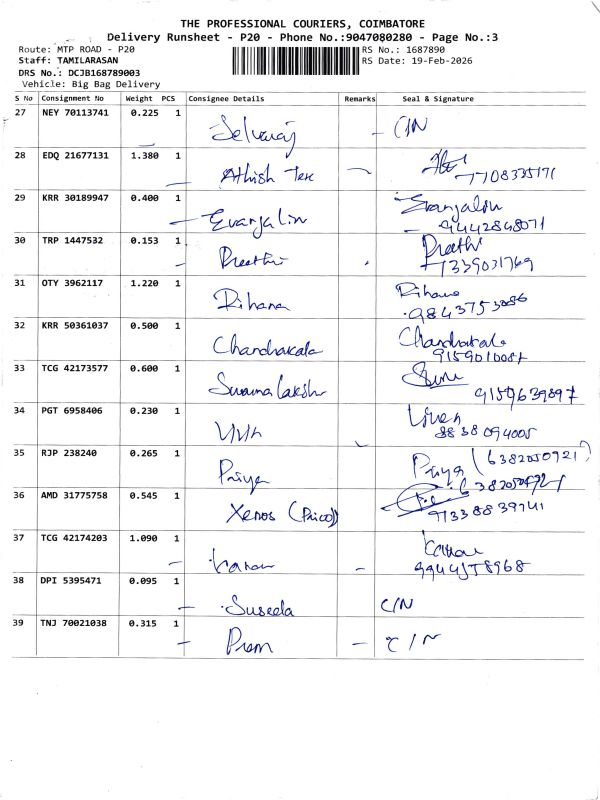 THE PROFESSIONAL COURIERS, COIMBATORE
Delivery Runsheet - P20 - Phone No.:9047080280 - Page No.:3
Route: MTP ROAD - P20 RS No.: 1687890
Staff: TAMILARASAN RS Date: 19-Feb-2026
DRS No.: DCJB168789003
Vehicle: Big Bag Delivery
S No Consignment No Weight PCS Consignee Details Remarks Seal & Signature
27 NEY 70113741 0.225 1 Selvaraj - C/N
28 EDQ 21677131 1.380 1 Athish
7708335171
29 KRR 30189947 0.400 1 Evanjalin Evanjalin
9442848071
30 TRP 1447532 0.153 1 Preethi Preethi
7339031769
31 OTY 3962117 1.220 1 Rihana Rihana
32 KRR 50361037 0.500 1 Chandrakala Chandrakala
33 TCG 42173577 0.600 1
9159639897
34 PGT 6958406 0.230 1
8838094005
35 RJP 238240 0.265 1 Priya Priya (6382050921)
36 AMD 31775758 0.545 1 Xenos
37 TCG 42174203 1.090 1
38 DPI 5395471 0.095 1 Suseela C/N
39 TNJ 70021038 0.315 1 Prem C/N